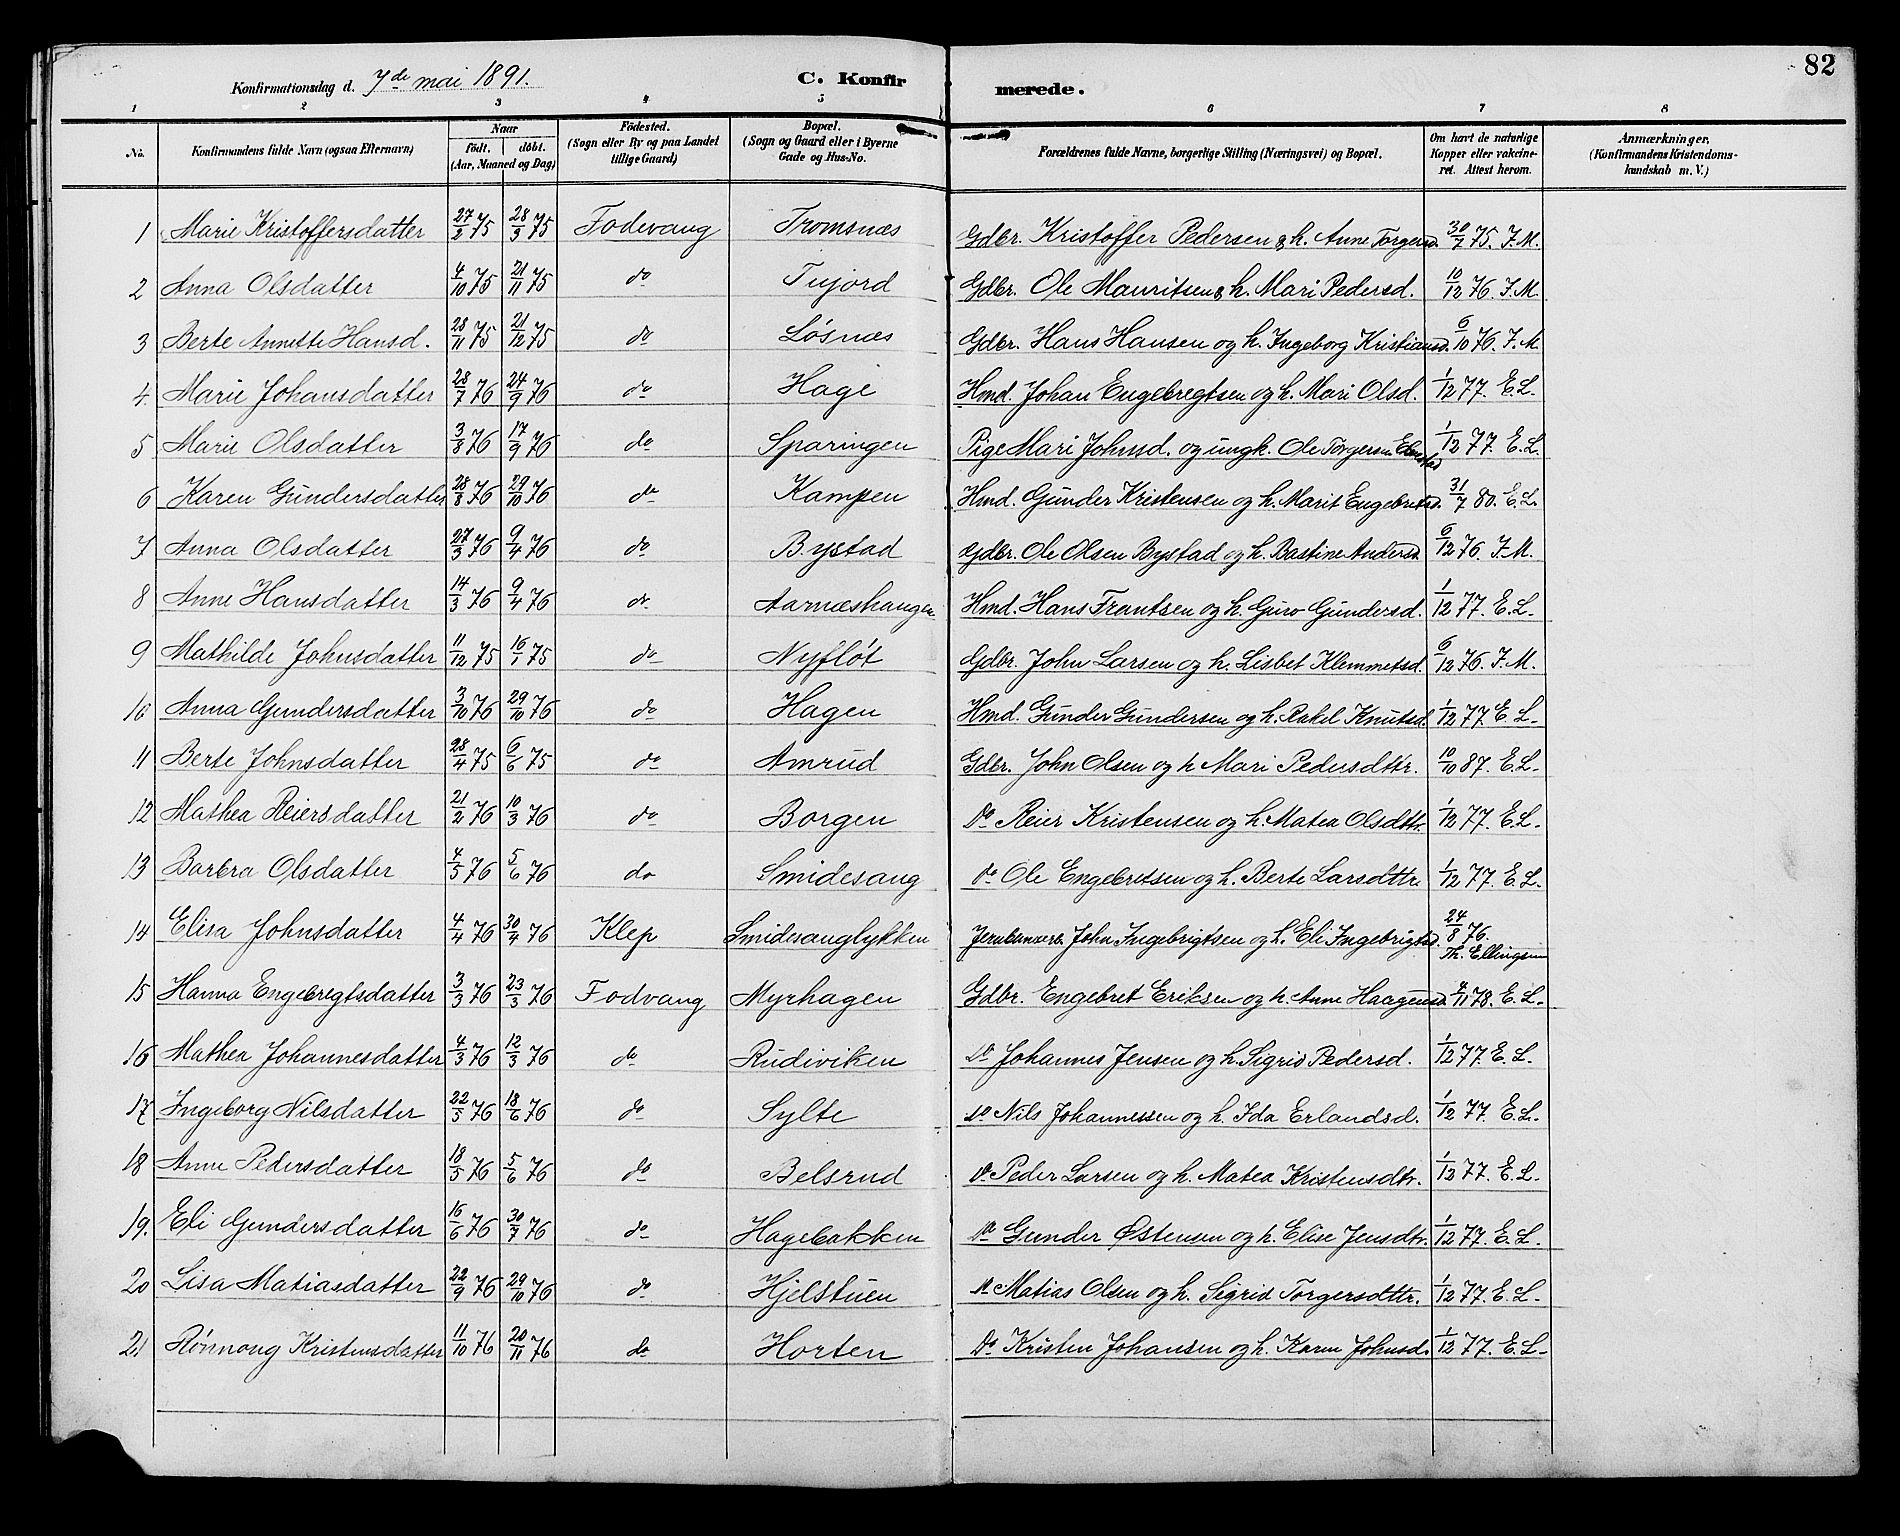 82
Konfirmationsdag d. 7de mai 1891. C. Konfirmerede.
1 2 3 4 5 6 7 8
No. Konfirmandens fulde Navn (ogsaa Efternavn) Naar födt. döbt. (Aar, Maaned og Dag) Födested. (Sogn eller By og paa Landet tillige Gaard) Bopæl. (Sogn og Gaard eller i Byerne Gade og Hus-No. Forældrenes fulde Navne, borgerlige Stilling (Næringsvei) og Bopæl. Om havt de naturlige Kopper eller vakcineret. Attest herom. Anmærkninger. (Konfirmandens Kristendomskundskab m. V.)
1 Marie Kristoffersdatter 27/2 75 28/3 75 Fodevang Tromsnæs Gdbr. Kristoffer Pedersen & h. Anne Torgersd. 30/7 75. J. M.
2 Anna Olsdatter 4/10 75 21/11 75 do Tujord Gdbr. Ole Mauritsen & h. Mari Pedersd. 10/12 76. J. M.
3 Berte Annette Hansd. 28/11 75 21/12 75 do Løsnæs Gdbr. Hans Hansen og h. Ingeborg Kristiansd. 6/10 76. J. M.
4. Marie Johansdatter 28/7 76 24/9 76 do Hage Hmd. Johan Engebregtsen og h. Mari Olsd. 1/12 77. E. L.
5 Marie Olsdatter 3/8 76 17/9 76 do Sparingen Pige Mari Johnsd. og ungk. Ole Torgersen 1/12 77. E. L.
6 Karen Gundersdatter 28/8 76 29/10 76 do Kampen Hmd. Gunder Kristensen og h. Marit Engebretsd. 31/7 80. E. L.
7 Anna Olsdatter 27/3 76 9/4 76 do Bystad Gdbr. Ole Olsen Bystad og h. Bastine Andersd. 6/12 76. J. M.
8 Anne Hansdatter 14/3 76 9/4 76 do Aarnæshaugen Hmd. Hans Frantsen og h. Guro Gundersd. 1/12 77. E. L.
9 Mathilde Johnsdatter 11/12 75 16/1 75 do Nyfløt Gdbr. John Larsen og h. Lisbet Klemmetsd. 6/12 76. J. M.
10 Anna Gundersdatter 3/10 76 29/10 76 do Hagen Hmd. Gunder Gundersen og h. Rakel Knutsd. 1/12 77. E. L.
11 Berte Johnsdatter 28/4 75 6/6 75 do Amrud Gdbr. John Olsen og h Mari Pedersdttr. 10/10 87. E. L.
12 Mathea Reiersdatter 21/2 76 10/3 76 do Borgen Do Reier Kristensen og h. Matea Olsdttr. 1/12 77. E. L.
13 Barbra Olsdatter 4/5 76 5/6 76 do Smidesang do Ole Engebretsen og h. Berte Larsdttr. 1/12 77. E. L.
14 Elisa Johnsdatter 4/4 76 30/4 76 Klep Smidesanglykken John Ingebrigtsen og h. Eli Ingebrigtsd. 24/8 76. Th. Ellingsen
15 Hanna Engebregtsdatter 3/3 76 23/3 76 Fodvang Myrhagen Gdbr. Engebret Eriksen og h. Anne Haagensd. 4/11 78. E. L.
16 Mathea Johannesdatter 4/3 76 12/3 76 do Rudiviken do Johannes Jensen og h. Sigrid Pedersd. 1/12 77. E. L.
17 Ingeborg Nilsdatter 22/5 76 18/6 76 do Sylte do Nils Johannessen og h. Ida Erlandsd. 1/12 77. E. L.
18 Anne Pedersdatter 18/5 76 5/6 76 do Belsrud do Peder Larsen og h. Matea Kristensdtr. 1/12 77. E. L.
19. Eli Gundersdatter 16/6 76 30/7 76 do Hagebakken do Gunder Østensen og h. Elise Jensdtr. 1/12 77. E. L.
20 Lisa Matiasdatter 22/9 76 29/10 76 do Hjelstuen do Matias Olsen og h. Sigrid Torgersdttr. 1/12 77. E. L.
21 Rønnong Kristensdatter 11/10 76 20/11 76 do Horten Do Kristen Johansen og h. Karen Johnsd. 1/12 77. E. L.